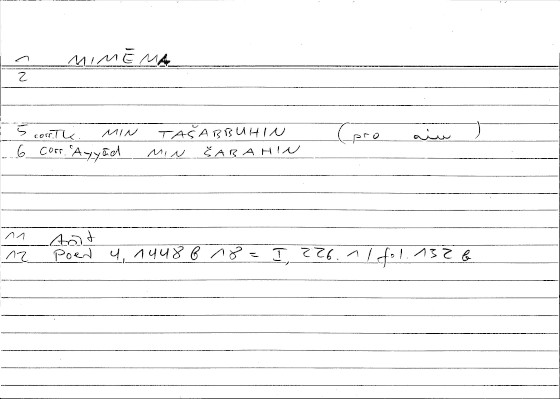 1 MIMĒMA
2
5 corrTk. MIN TAŠABBUHIN (pro aiw)
6 corr ʿAyyād MIN ŠABAHIN
11 Arist
12 Poet 4, 1448 b 18 = I, 226.1 / fol. 132 b